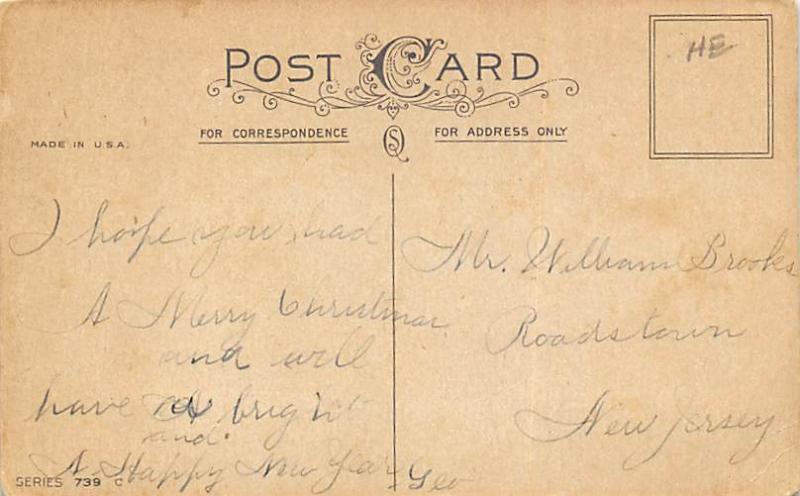 HE
POST CARD
FOR CORRESPONDENCE
FOR ADDRESS ONLY
MADE IN U.S.A.
SQ
I hope you had
A Merry Christmas
and will
have a bright
and
A Happy New Year
Geo
Mr. William Brooks
Roadstown
New Jersey
SERIES 739 C